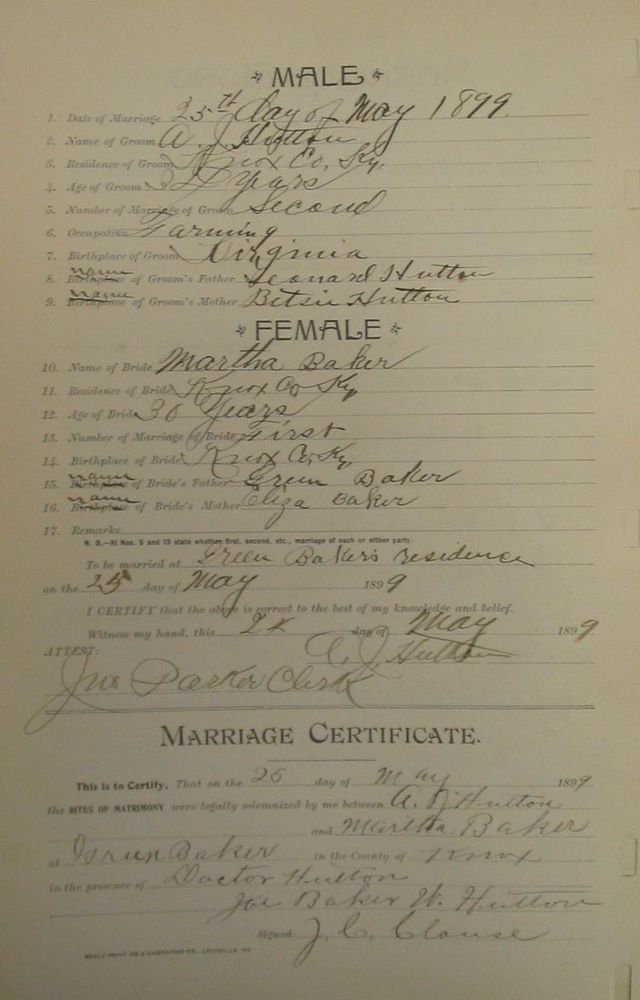 MALE
1. Date of Marriage 25th day of May 1899.
2. Name of Groom A. J. Hutton
3. Residence of Groom Knox Co, Ky,
4. Age of Groom Years
5. Number of Marriage of Groom Second
6. Occupation Farming
7. Birthplace of Groom Virginia
8. Birthplace name of Groom's Father Leonard Hutton
9. Birthplace name of Groom's Mother Betsie Hutton
FEMALE
10. Name of Bride Martha Baker
11. Residence of Bride Knox Co, Ky
12. Age of Bride 30 Years
13. Number of Marriage of Bride First
14. Birthplace of Bride Knox Co, Ky,
15. Birthplace name of Bride's Father Green Baker
16. Birthplace name of Bride's Mother Eliza Baker
17. Remarks
N. B.—At Nos. 5 and 13 state whether first, second, etc., marriage of each or either party.
To be married at Green Bakers residence
on the 25 day of May 1899
I CERTIFY that the above is correct to the best of my knowledge and belief.
Witness my hand, this day of May 1899
ATTEST: A. J. Hutton
Jno Parker Clerk
MARRIAGE CERTIFICATE.
This is to Certify, That on the 25 day of May 1899
the RITES OF MATRIMONY were legally solemnized by me between A. J. Hutton
and Martha Baker
at Green Baker in the County of Knox
in the presence of Doctor Hutton
Joe Baker W. Hutton
Signed J. C. Clouse